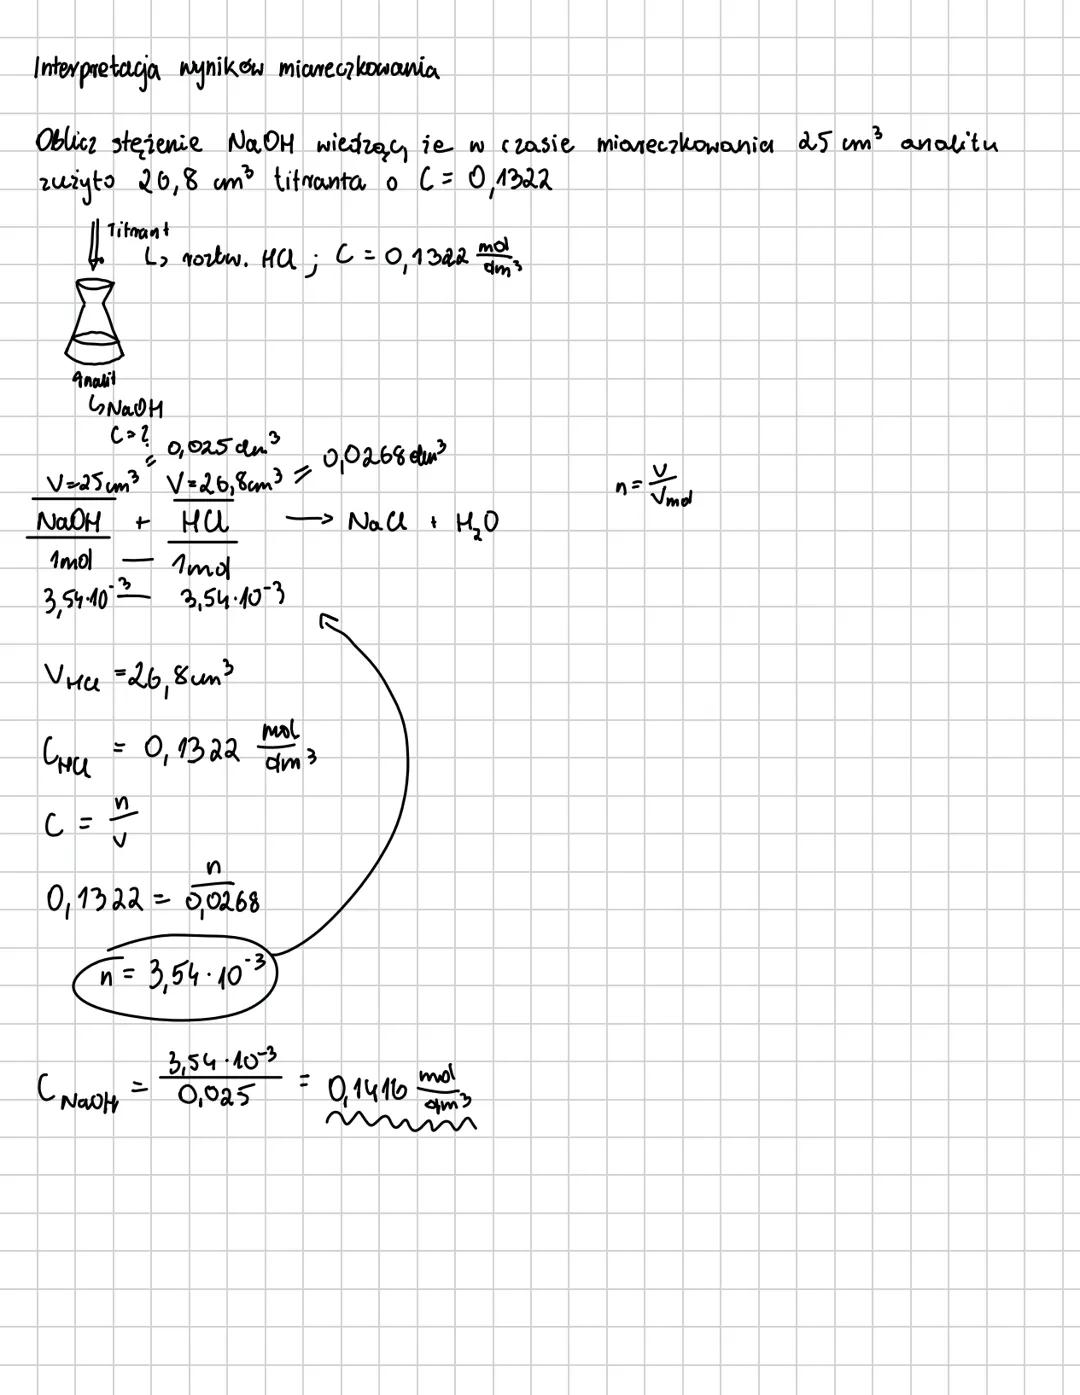 Interpretacja wyników miareczkowania
Oblicz stężenie NaOH wiedzący że w czasie miareczkowania 25 cm³ analitu
zużyto 26,8 cm³ titranta o C = 0,1322
Titrant
↳ roztw. HCl ; C = 0,1322 mol/dm³
Analit
↳ NaOH
C = ?
= 0,025 dm³ = 0,0268 dm³
V = 25 cm³ V = 26,8 cm³
n = V/Vmol
NaOH + HCl → NaCl + H₂O
1mol — 1mol
3,54·10⁻³ — 3,54·10⁻³
V HCl = 26,8 cm³
C HCl = 0,1322 mol/dm³
C = n/V
0,1322 = n/0,0268
n = 3,54·10⁻³
C NaOH = 3,54·10⁻³/0,025 = 0,1416 mol/dm³